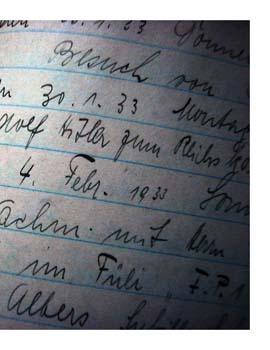 30.1.33 Donner
Besuch von
30.1.33 Montag
Adolf Hitler zum Reichs
4. Febr. 1933 Son
Nachm. mit
im Füli „F.P.1
Albers